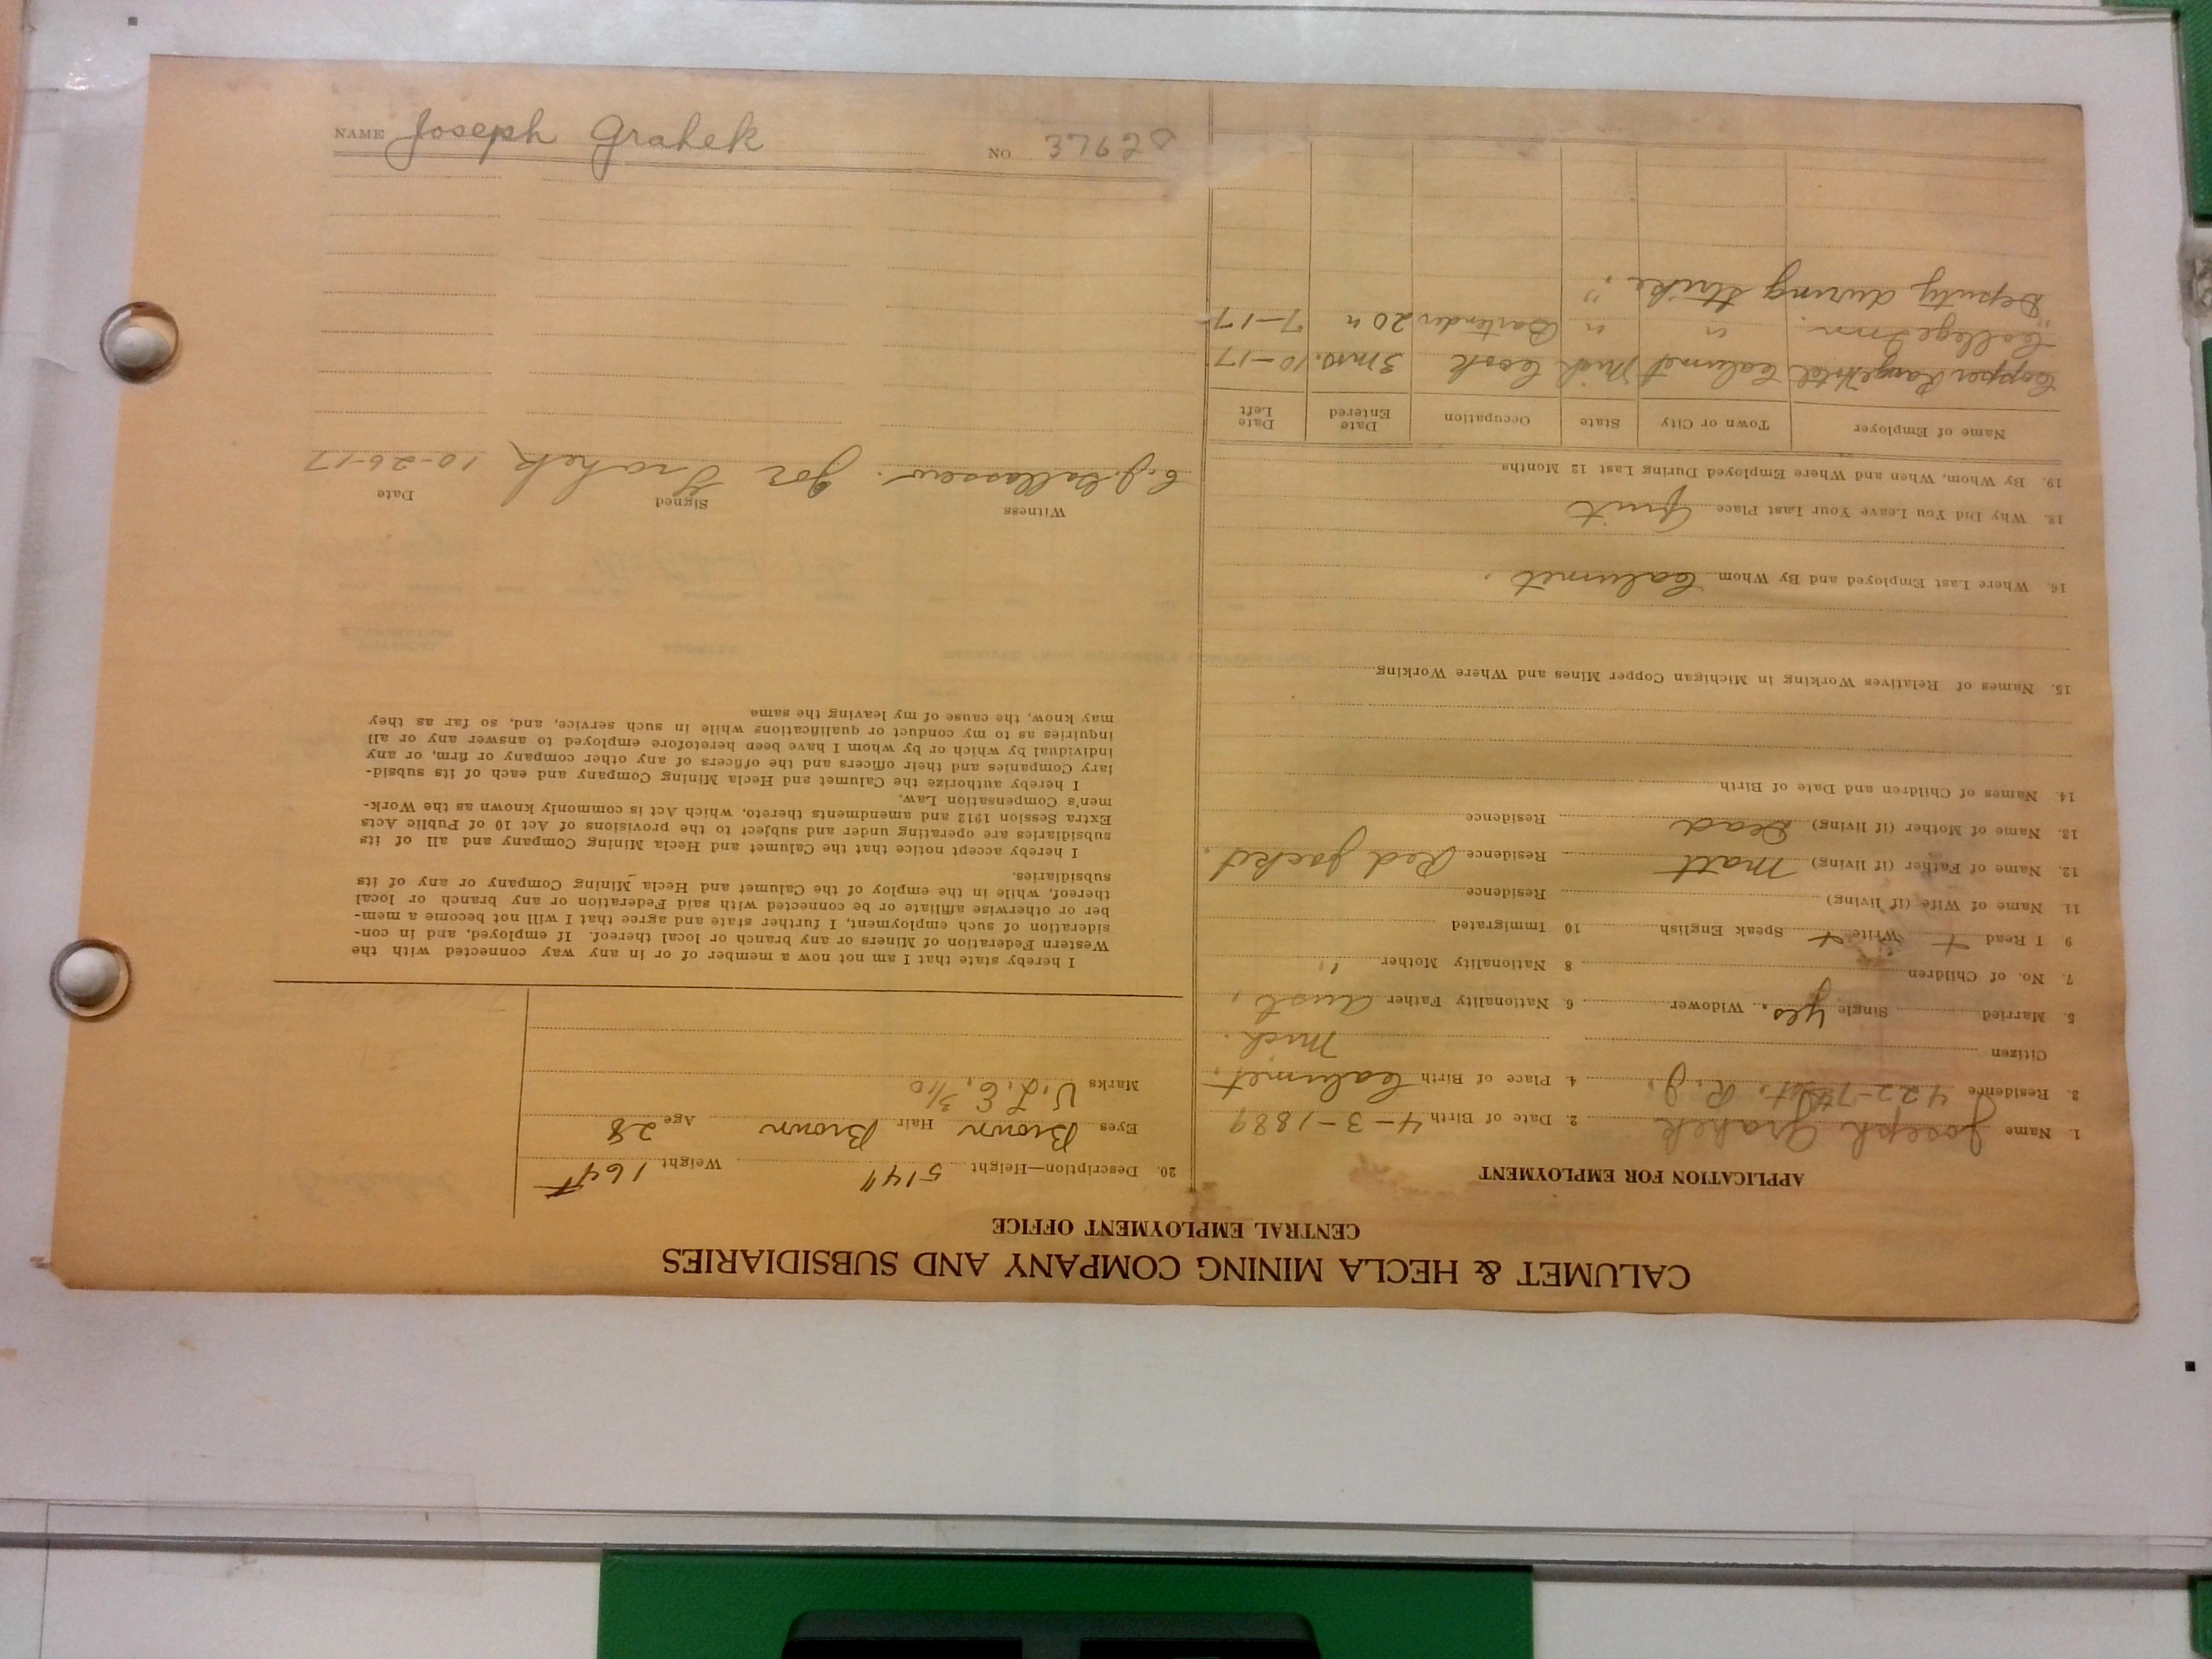 CALUMET & HECLA MINING COMPANY AND SUBSIDIARIES
CENTRAL EMPLOYMENT OFFICE
APPLICATION FOR EMPLOYMENT
1. Name Joseph Grahek 2. Date of Birth 4-3-1889
3. Residence 422-7th St. R. J. 4. Place of Birth Calumet,
Citizen Mich.
5. Married Single yes. Widower 6. Nationality Father Aust,
7. No. of Children 8 Nationality Mother "
9 I Read + Write + Speak English 10 Immigrated
11. Name of Wife (if living) Residence
12. Name of Father (if living) Matt Residence Red Jacket.
13. Name of Mother (if living) Dead Residence
14. Names of Children and Date of Birth
15. Names of Relatives Working in Michigan Copper Mines and Where Working
16. Where Last Employed and By Whom Calumet.
18. Why Did You Leave Your Last Place Quit
19. By Whom, When and Where Employed During Last 12 Months
Name of Employer Town or City State Occupation Date Entered Date Left
Copper Range Hotel Calumet Mich Cook 3 mos. 10-17
College Inn " " Bartender 20 " 7-17
Deputy during strike.
20. Description—Height 5' 4" Weight 164#
Eyes Brown Hair Brown Age 28
Marks V. L. E. 3/10
I hereby state that I am not now a member of or in any way connected with the
Western Federation of Miners or any branch or local thereof. If employed, and in con-
sideration of such employment, I further state and agree that I will not become a mem-
ber or otherwise affiliate or be connected with said Federation or any branch or local
thereof, while in the employ of the Calumet and Hecla Mining Company or any of its
subsidiaries.
I hereby accept notice that the Calumet and Hecla Mining Company and all of its
subsidiaries are operating under and subject to the provisions of Act 10 of Public Acts
Extra Session 1912 and amendments thereto, which Act is commonly known as the Work-
men's Compensation Law.
I hereby authorize the Calumet and Hecla Mining Company and each of its subsid-
iary Companies and their officers and the officers of any other company or firm, or any
individual by which or by whom I have been heretofore employed to answer any or all
inquiries as to my conduct or qualifications while in such service, and, so far as they
may know, the cause of my leaving the same.
Witness Signed Date
Joe Grahek 10-26-17
NAME Joseph Grahek NO 37628